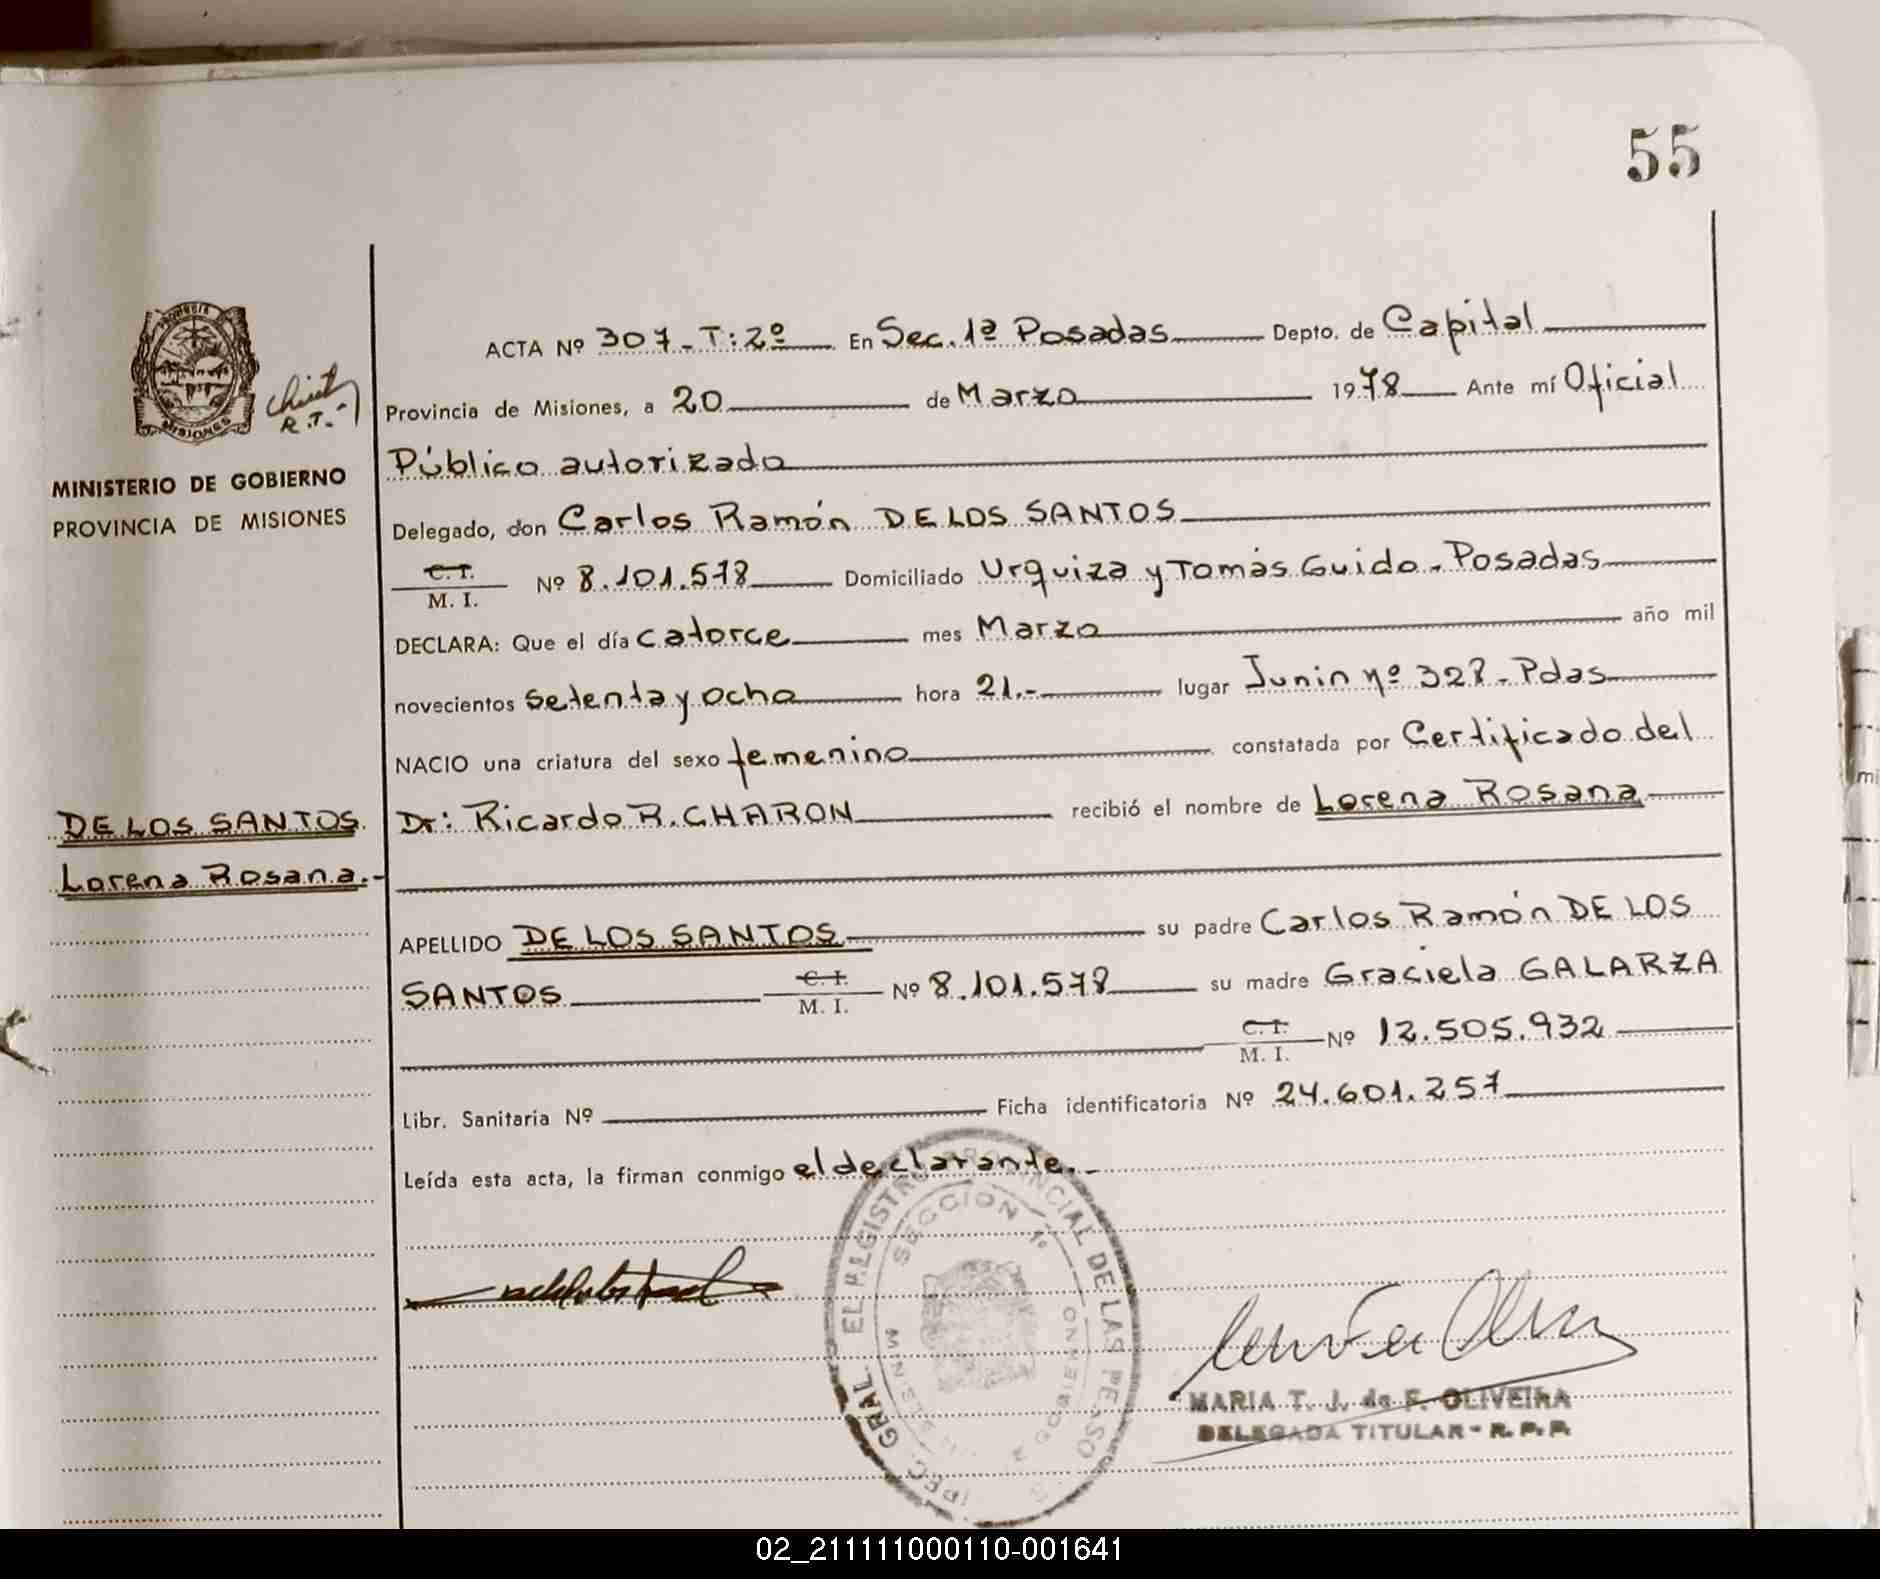 55
ACTA Nº 307-T:2º En Sec. 1ª Posadas Depto. de Capital
Provincia de Misiones, a 20 de Marzo 1978 Ante mí Oficial
Público autorizado
MINISTERIO DE GOBIERNO
PROVINCIA DE MISIONES
Delegado, don Carlos Ramón DE LOS SANTOS
C. I.
M. I. Nº 8.101.578 Domiciliado Urquiza y Tomás Guido - Posadas
DECLARA: Que el día catorce mes Marzo año mil
novecientos setenta y ocho hora 21.- lugar Junin nº 328 - Pdas
NACIO una criatura del sexo femenino constatada por Certificado del
Dr: Ricardo R. CHARON recibió el nombre de Lorena Rosana
DE LOS SANTOS
Lorena Rosana.-
APELLIDO DE LOS SANTOS su padre Carlos Ramón DE LOS
SANTOS C. I.
M. I. Nº 8.101.578 su madre Graciela GALARZA
C. I.
M. I. Nº 12.505.932
Libr. Sanitaria Nº Ficha identificatoria Nº 24.601.257
Leída esta acta, la firman conmigo el declarante.-
SECCION 1ª
MARIA T. J. de F. OLIVEIRA
DELEGADA TITULAR - R. P. P.
02_211111000110-001641